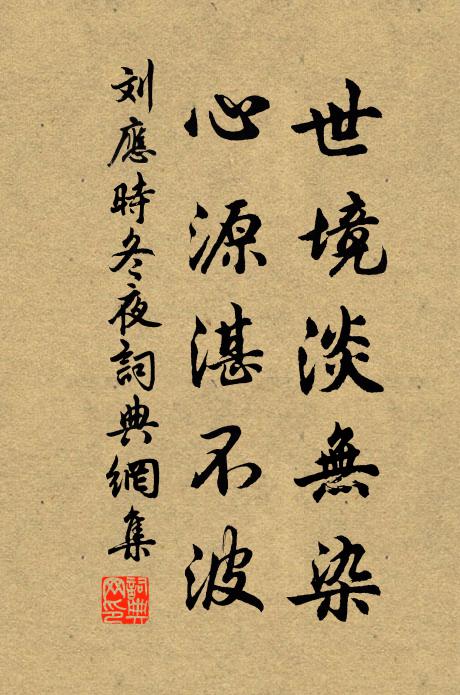 世境淡無染
心源湛不波
刘應時冬夜詞典網集
詞典
网印